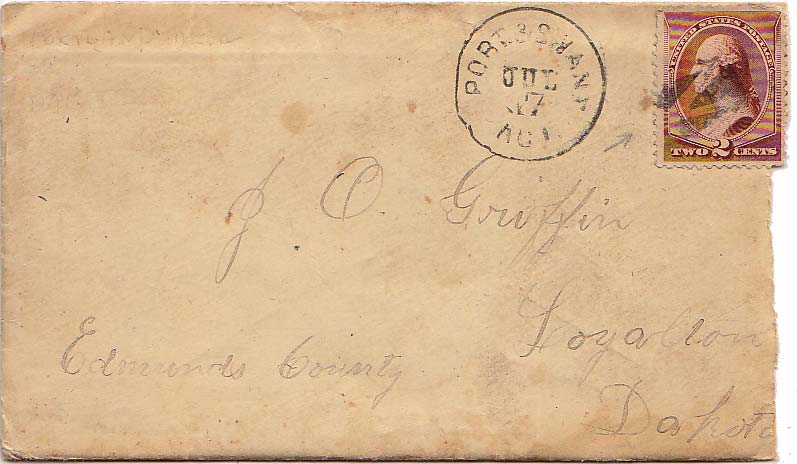 JUL
17
UNITED STATES POSTAGE
TWO 2 CENTS
J. O. Griffin
Loyalton
Edmunds County
Dakota